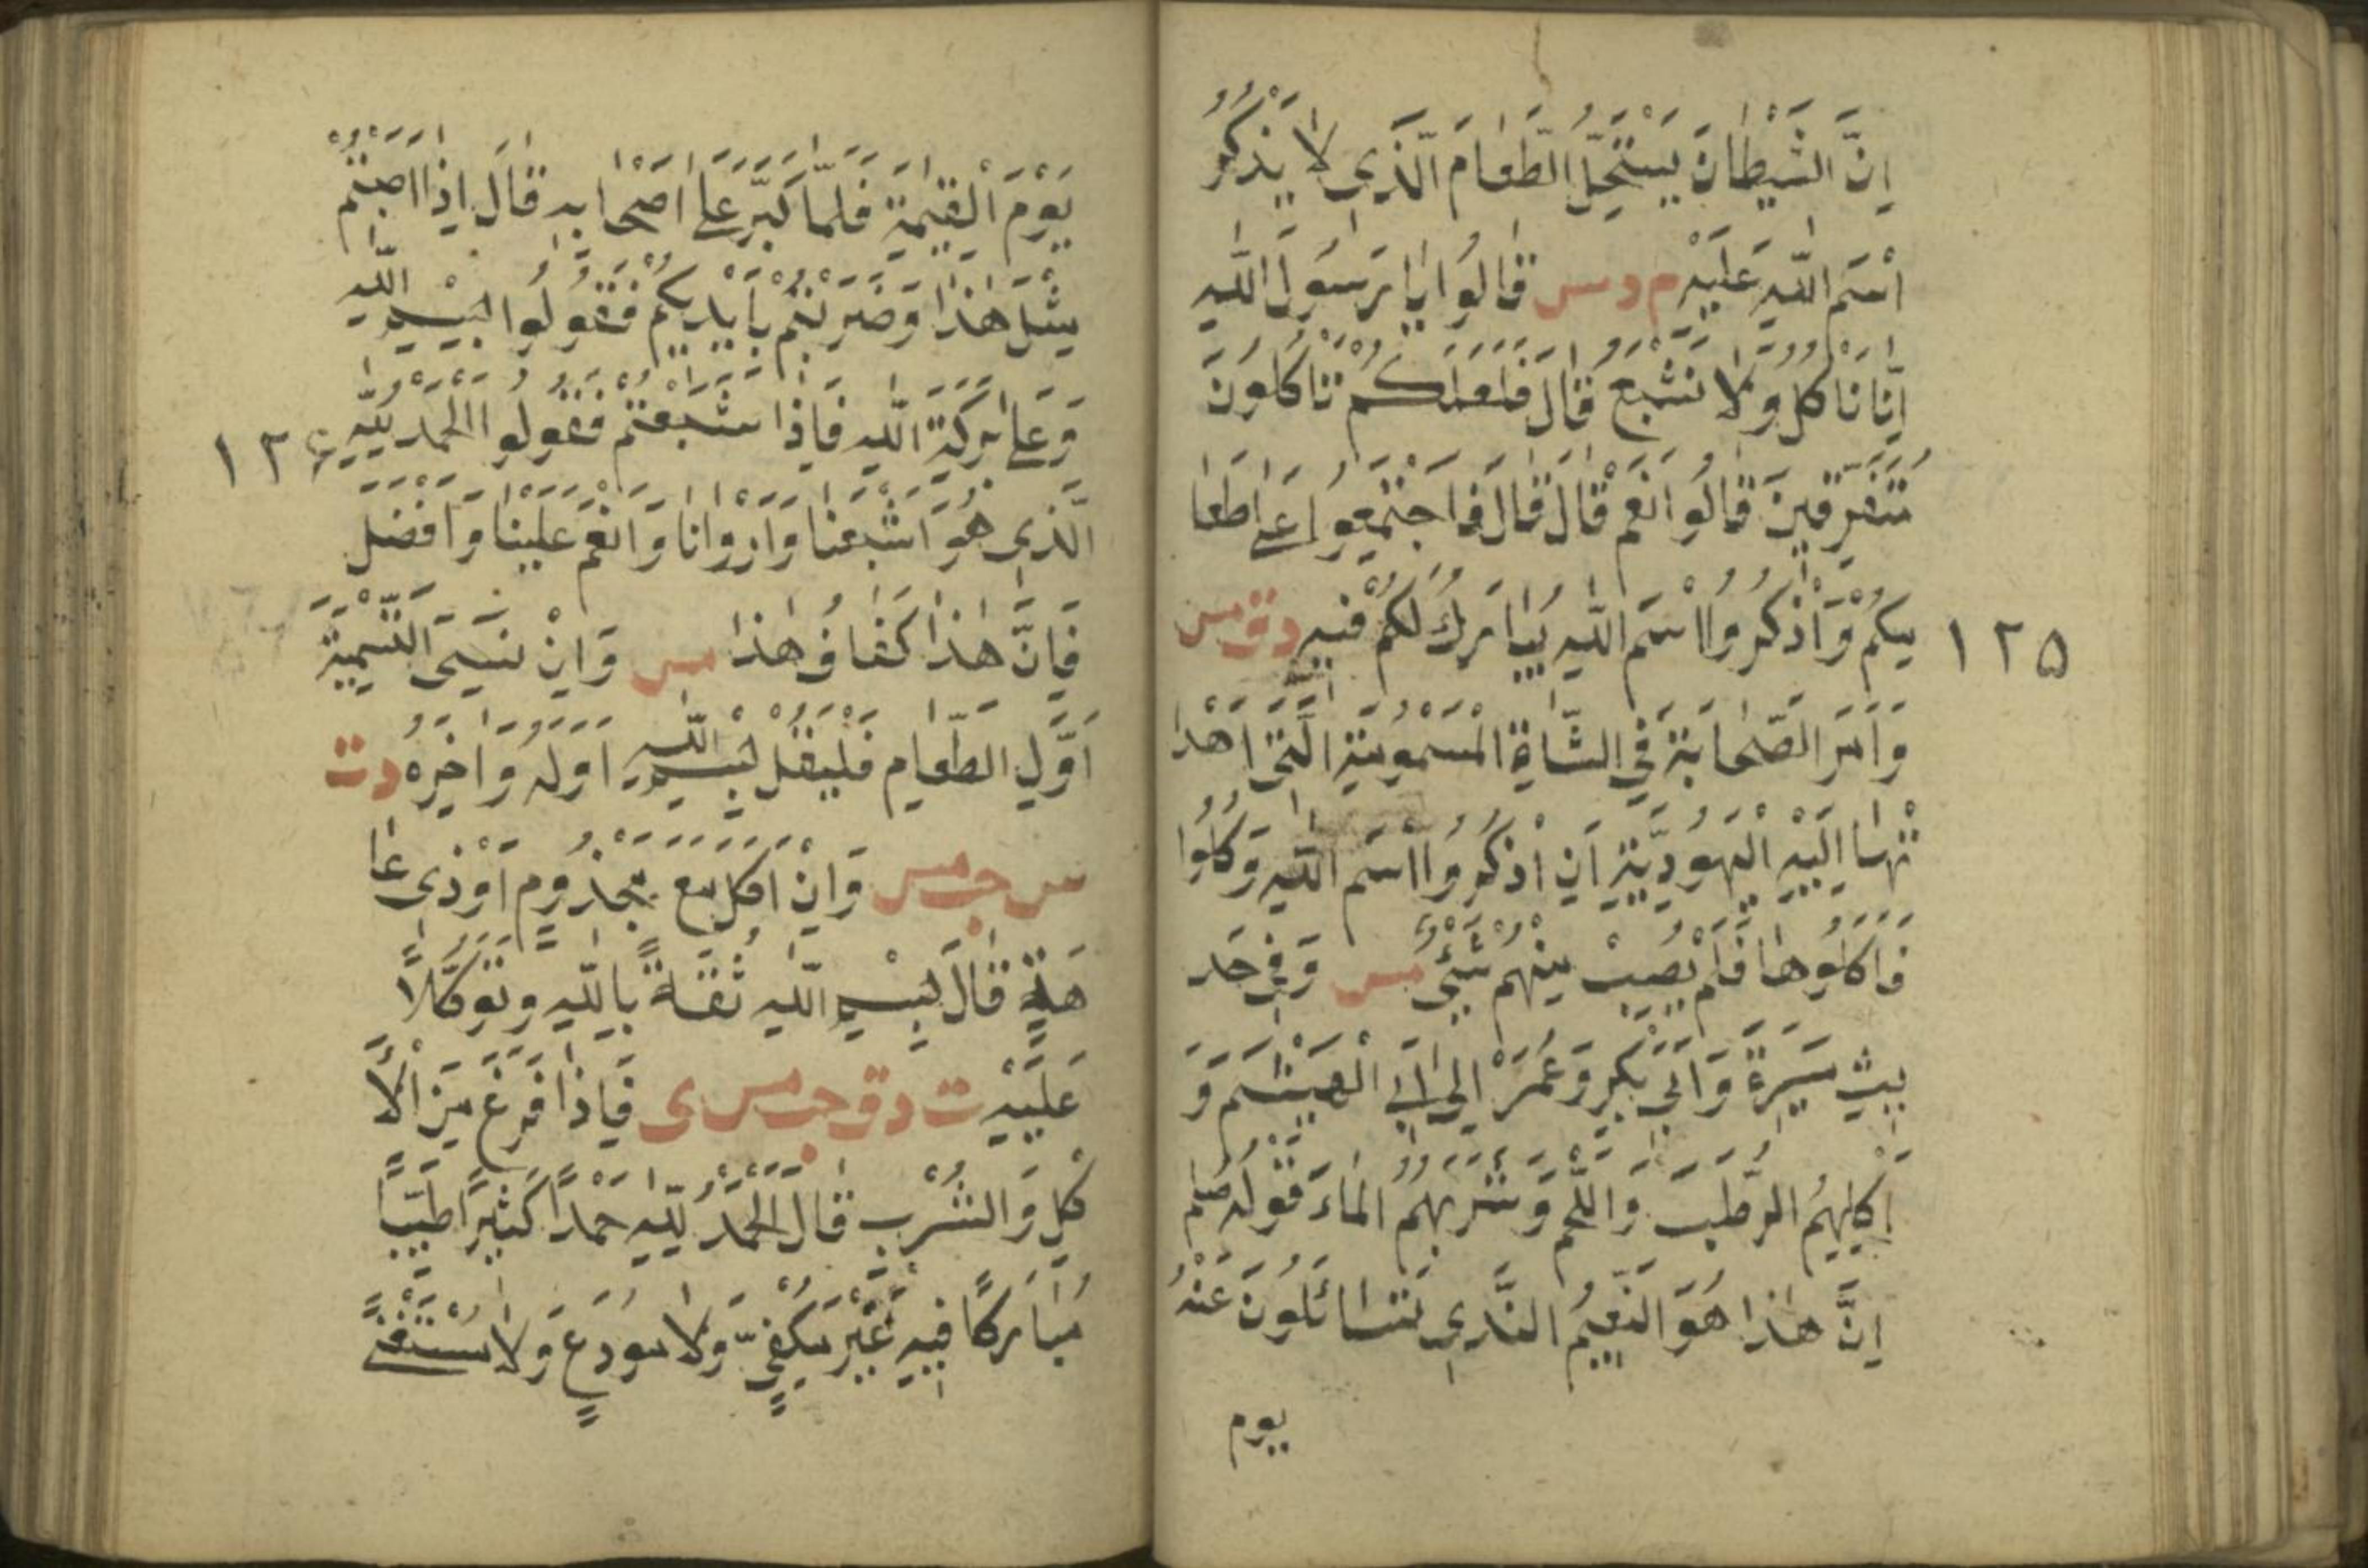 اِنَّ الشَّيْطَانَ يَسْتَحِلُّ الطَّعَامَ الَّذِي لَا يُذْكَرُ
اسْمُ اللّٰهِ عَلَيْهِ م د س قَالُوا يَا رَسُولَ اللّٰهِ
اِنَّا نَاْكُلُ وَلَا نَشْبَعُ قَالَ فَلَعَلَّكُمْ تَاْكُلُونَ
مُتَفَرِّقِينَ قَالُوا نَعَمْ قَالَ قَالَ فَاجْتَمِعُوا عَلَى طَعَا
مِكُمْ وَاذْكُرُوا اسْمَ اللّٰهِ يُبَارَكْ لَكُمْ فِيهِ د ق مس
١٢٥
وَاَمَرَ الصَّحَابَةَ فِي الشَّاةِ الْمَسْمُومَةِ الَّتِي اَهْدَ
تْهَا اِلَيْهِ الْيَهُودِيَّةِ اَنِ اذْكُرُوا اسْمَ اللّٰهِ وَكُلُوا
فَاَكَلُوهَا فَلَمْ يُصِيبْ مِنْهُمْ شَيْئٌ مس وَفِي حَد
يثِ مَسِيَرةِ وَاَبِي بَكْرٍ وَعُمَرَ اِلَى اَبِي الْهَيْثَمِ وَ
اَكْلِهِمُ الرُّطَبَ وَاللَّحْمَ وَشُرْبِهِمُ الْمَاءَ قَوْلُهُ صلم
اِنَّ هٰذَا هُوَ النَّعِيمُ الَّذِي تَتَسَائَلُونَ عَنْهُ
يوم
يَوْمَ الْقِيٰمَةِ فَلَمَّا كَبَّرَ عَلَى اَصْحَابِهِ قَالَ اِذَا اَصَبْتُمْ
مِثْلَ هٰذَا وَضَرَبْتُمْ بِاَيْدِيكُمْ فَقُولُوا بِسْمِ اللّٰهِ
وَعَلَى بَرَكَةِ اللّٰهِ فَاِذَا شَبِعْتُمْ فَقُولُوا الْحَمْدُ لِلّٰهِ
١٢۶
الَّذِي هُوَ اَشْبَعَنَا وَاَرْوَانَا وَاَنْعَمَ عَلَيْنَا وَاَفْضَلَ
فَاِنَّ هٰذَا كَفَافُ هٰذَا مس وَاِنْ نَسِيَ التَّسْمِيَةَ
اَوَّلِ الطَّعَامِ فَلْيَقُلْ بِسْمِ اللّٰهِ اَوَّلَهُ وَاٰخِرَهُ د ت
س حب مس وَاِنْ اَكَلَ مَعَ مَجْذُومٍ اَوْ ذِي عَا
هَةٍ قَالَ بِسْمِ اللّٰهِ ثِقَةً بِاللّٰهِ وَتَوَكُّلًا
عَلَيْهِ ت د ق حب مس ى فَاِذَا فَرَغَ مِنَ الْاَ
كْلِ وَالشُّرْبِ قَالَ الْحَمْدُ لِلّٰهِ حَمْدًا كَثِيرًا طَيِّبًا
مُبَارَكًا فِيهِ غَيْرَ مَكْفِيٍّ وَلَا مُوَدَّعٍ وَلَا مُسْتَغْنًى